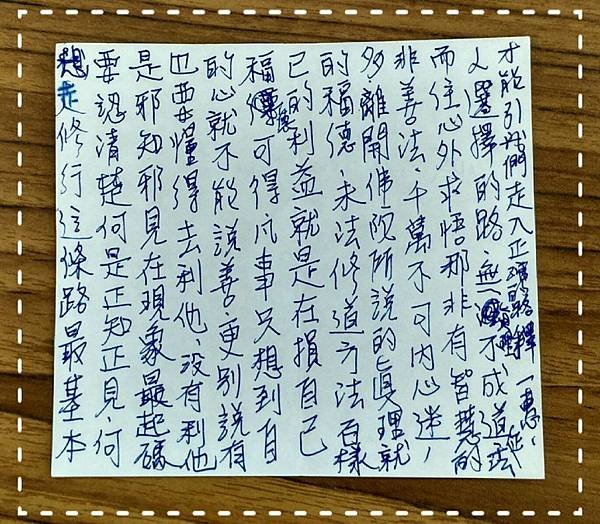 想走修行這條路最基本
要認清楚何是正知正見、何
是邪知邪見在現象最起碼
也要懂得去利他、沒有利他
的心就不能說善、更別說有
福德可得凡事只想到自
己的利益就是在損自己
的福德、末法修道方法百樣
多離開佛陀所說的真理就
非善法、千萬不可內心迷、
而往心外求悟那非有智慧的
人選擇的路 無 不成道
才能引我們走入正確的